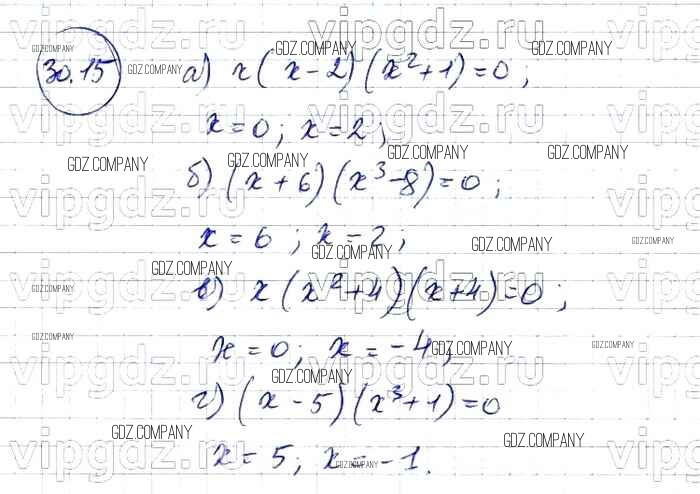 30.15 а) x(x-2)(x²+1)=0;
x=0; x=2;
б) (x+6)(x³-8)=0;
x=6; x=2;
в) x(x²+4)(x+4)=0;
x=0; x=-4;
г) (x-5)(x³+1)=0
x=5; x=-1.
vipgdz.ru
GDZ.COMPANY